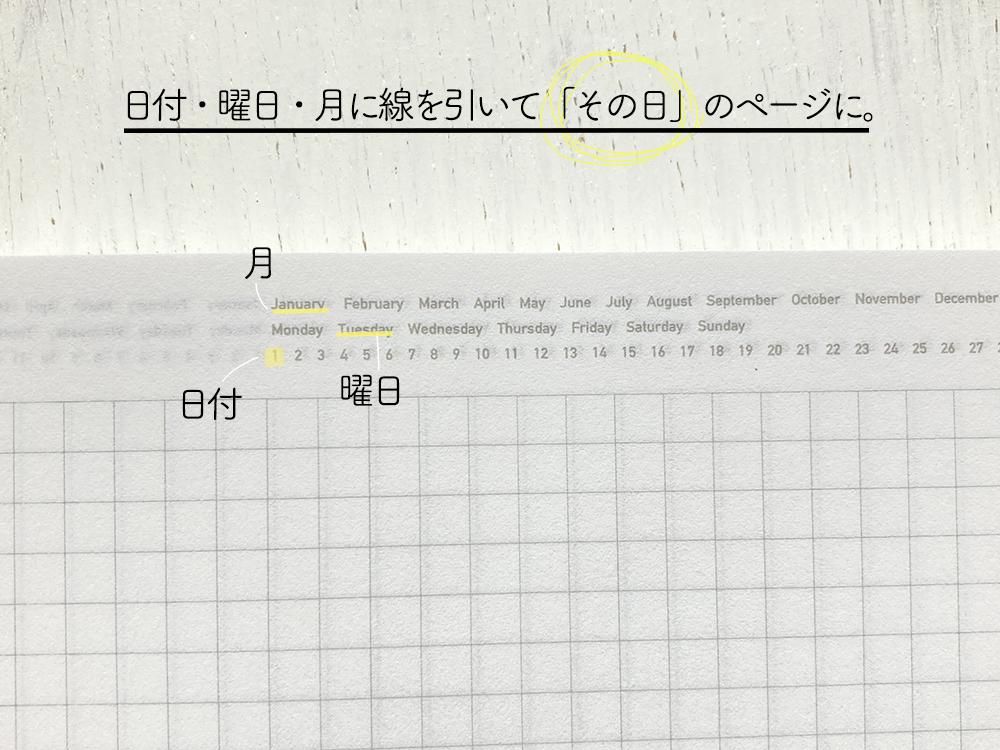 日付・曜日・月に線を引いて「その日」のページに。
月
January February March April May June July August September October November December
Monday Tuesday Wednesday Thursday Friday Saturday Sunday
1 2 3 4 5 6 7 8 9 10 11 12 13 14 15 16 17 18 19 20 21 22 23 24 25 26 27
日付
曜日